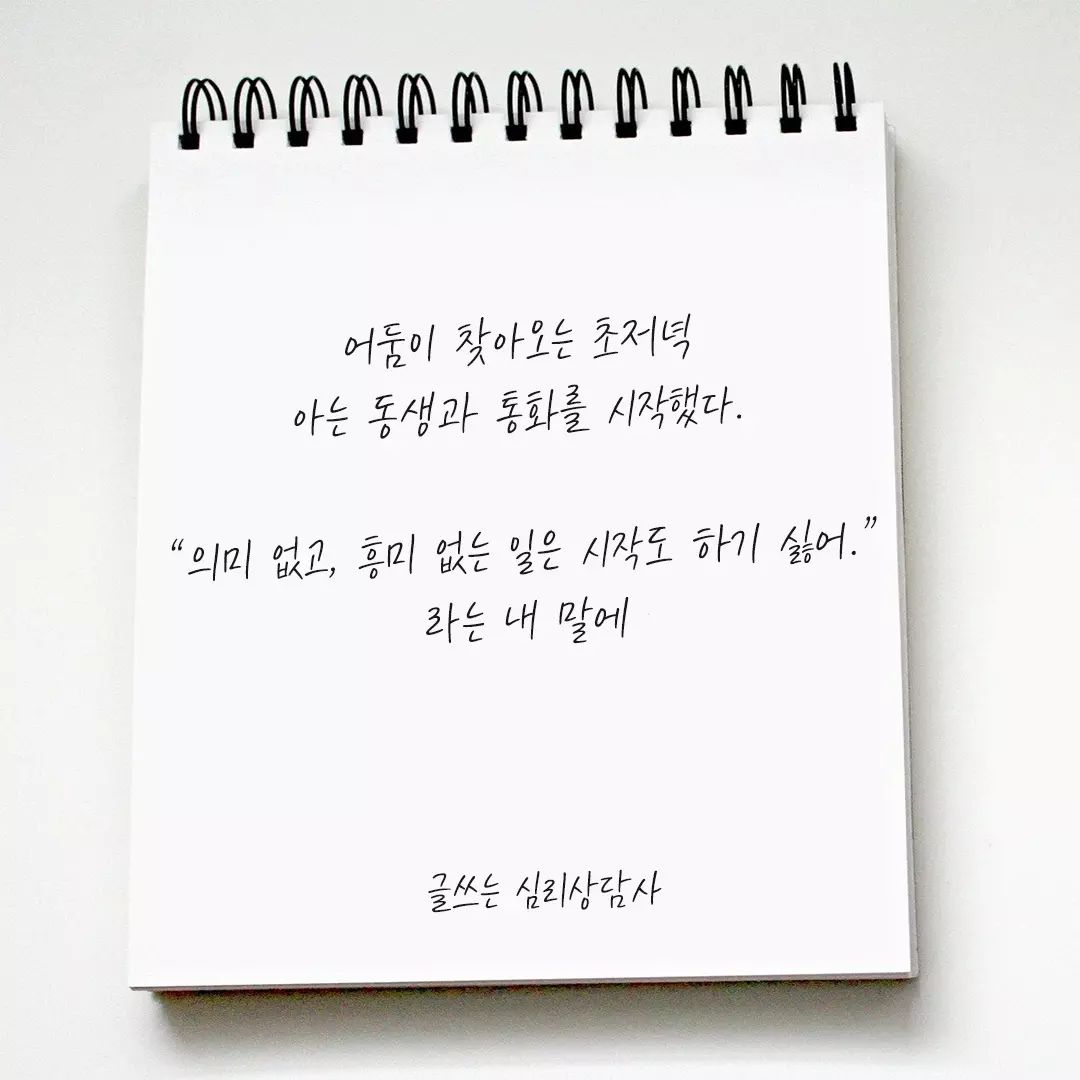 어둠이 찾아오는 초저녁
아는 동생과 통화를 시작했다.
“의미 없고, 흥미 없는 일은 시작도 하기 싫어.”
라는 내 말에
글쓰는 심리상담사